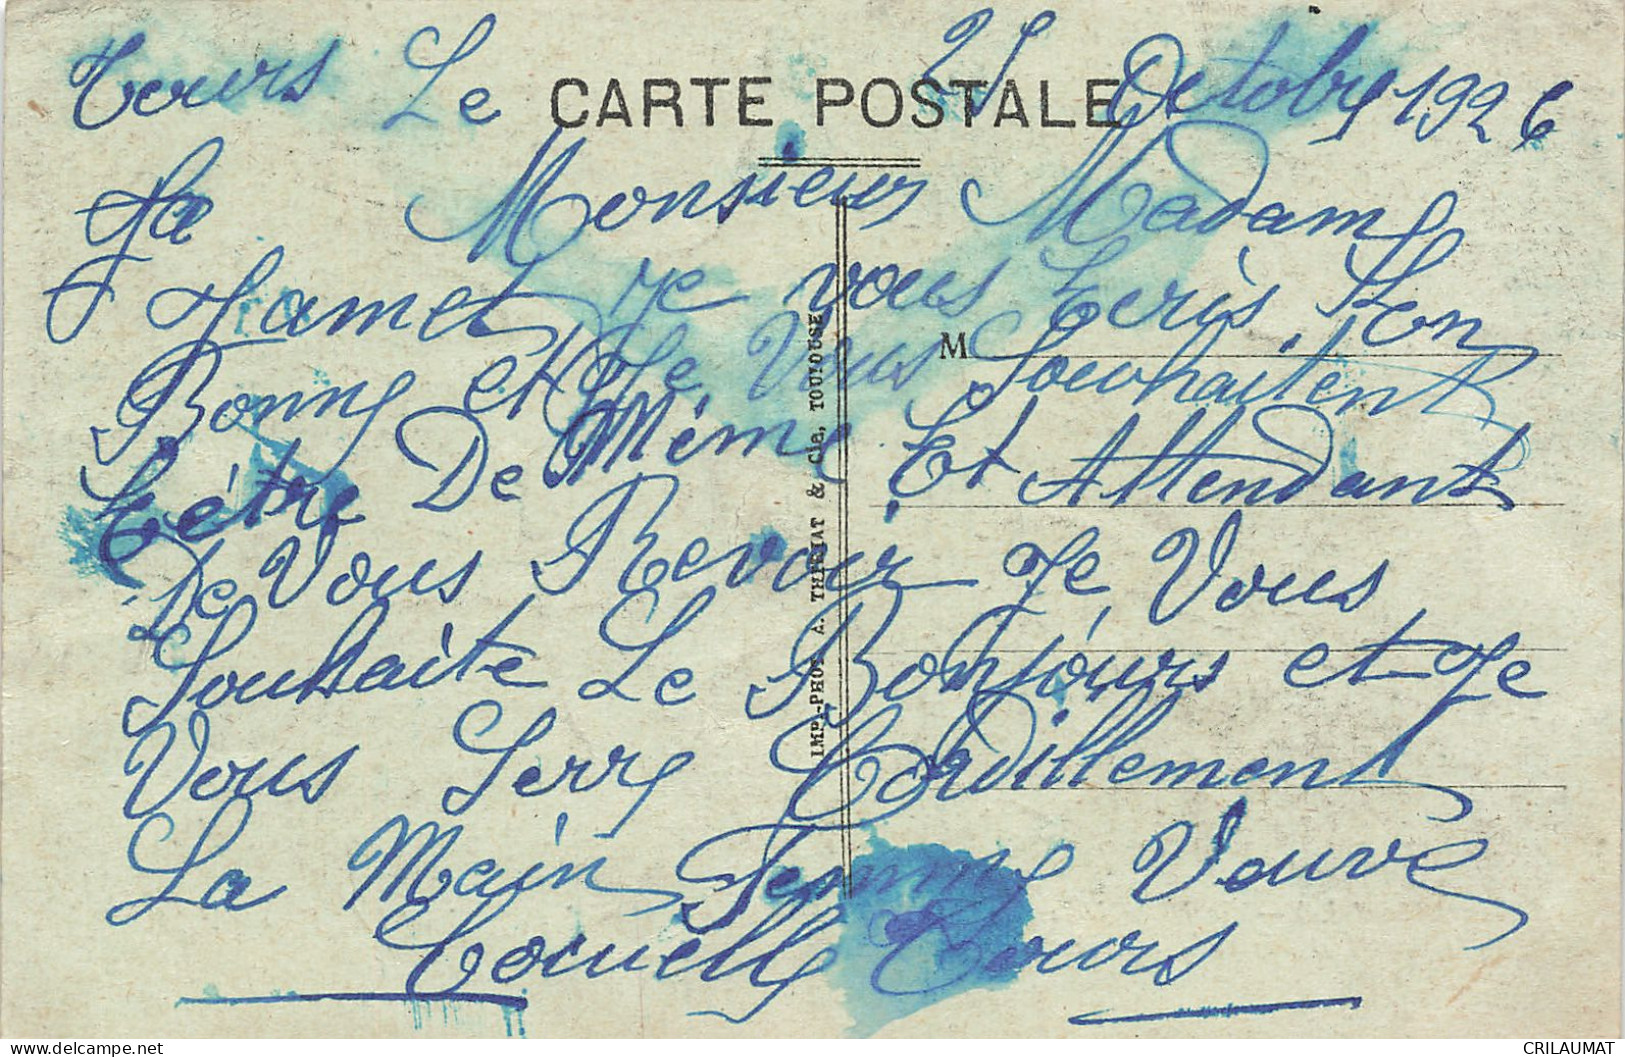 Tours Le 25 Octobre 1926
CARTE POSTALE
Monsieur Madame
Hamel Je vous Ecris. Son
Bonne et Je Vous Souhaitent
M
Létre De Même Et Attendant
De Vous Revoir Je Vous
Souhaite Le Bonjours et Je
Vous Serre Cordillement
La Main Femme Veuve
Tours
IMP.-PHOT. A. THIRIAT & Cie, TOULOUSE
CRILAUMAT